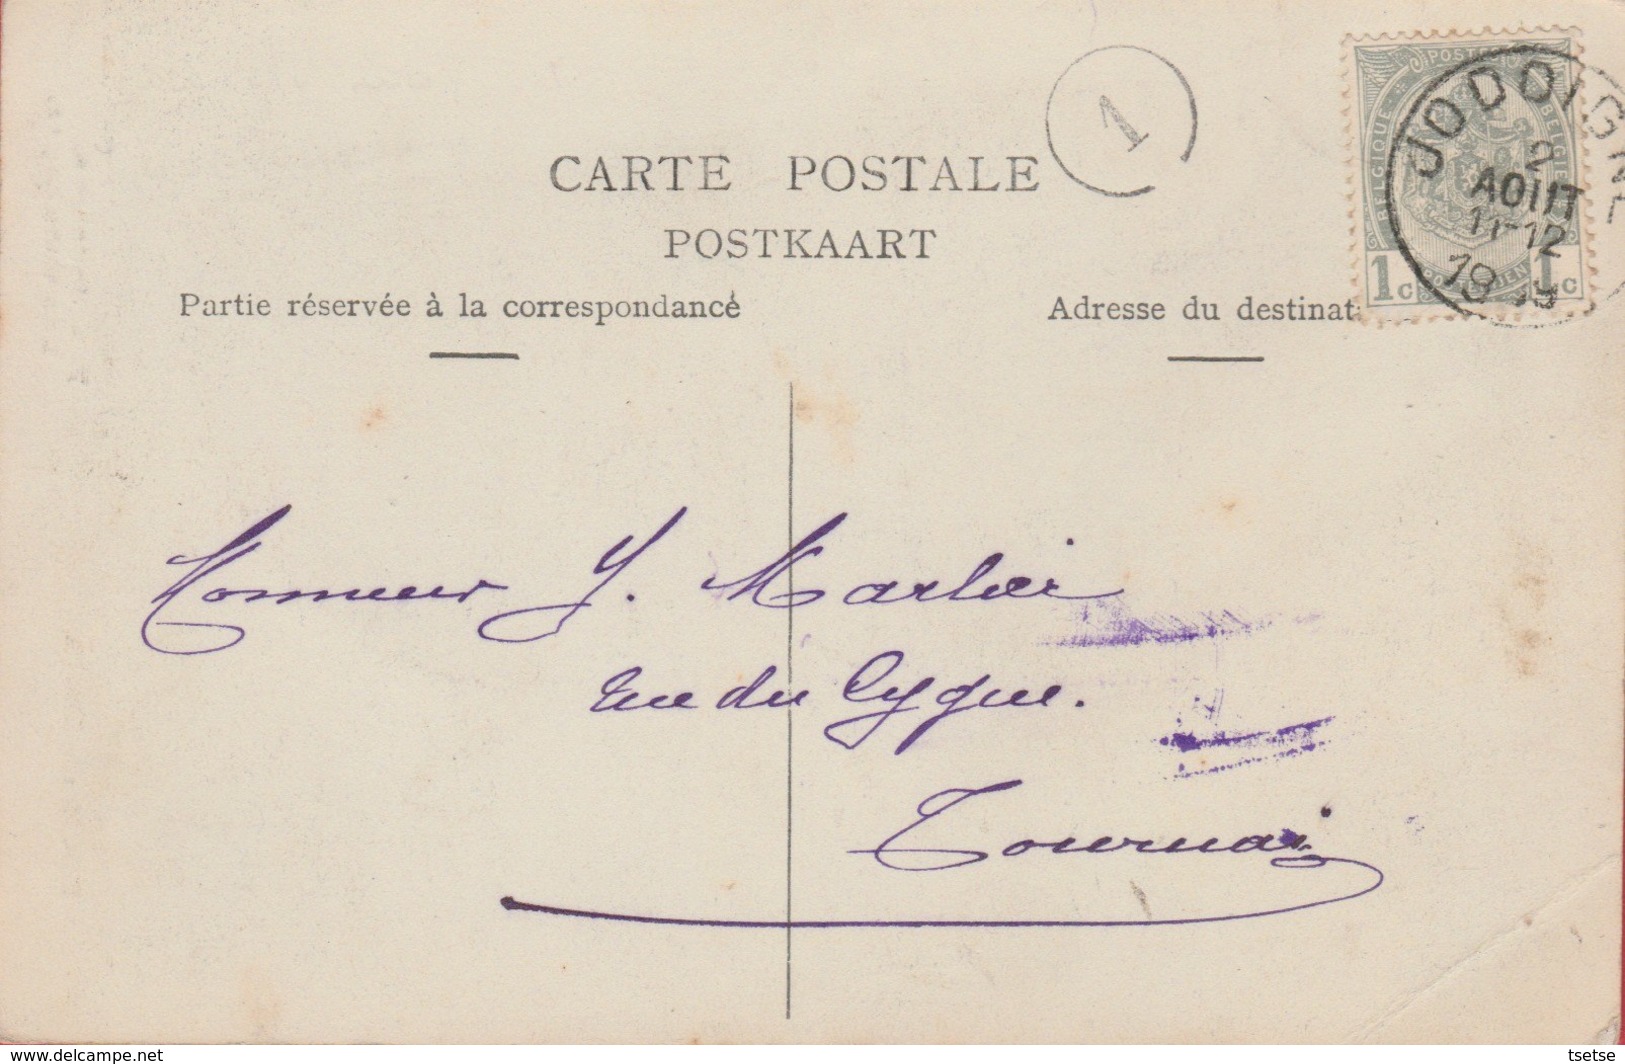 1
JODOIGNE
2
AOUT
11-12
19 09
POSTES
BELGIQUE
BELGIE
POSTERIJEN
1c 1c
CARTE POSTALE
POSTKAART
Partie réservée à la correspondance
Adresse du destinat
Monsieur J. Marlier
Rue du Cygne.
Tournai
www.delcampe.net
tsetse